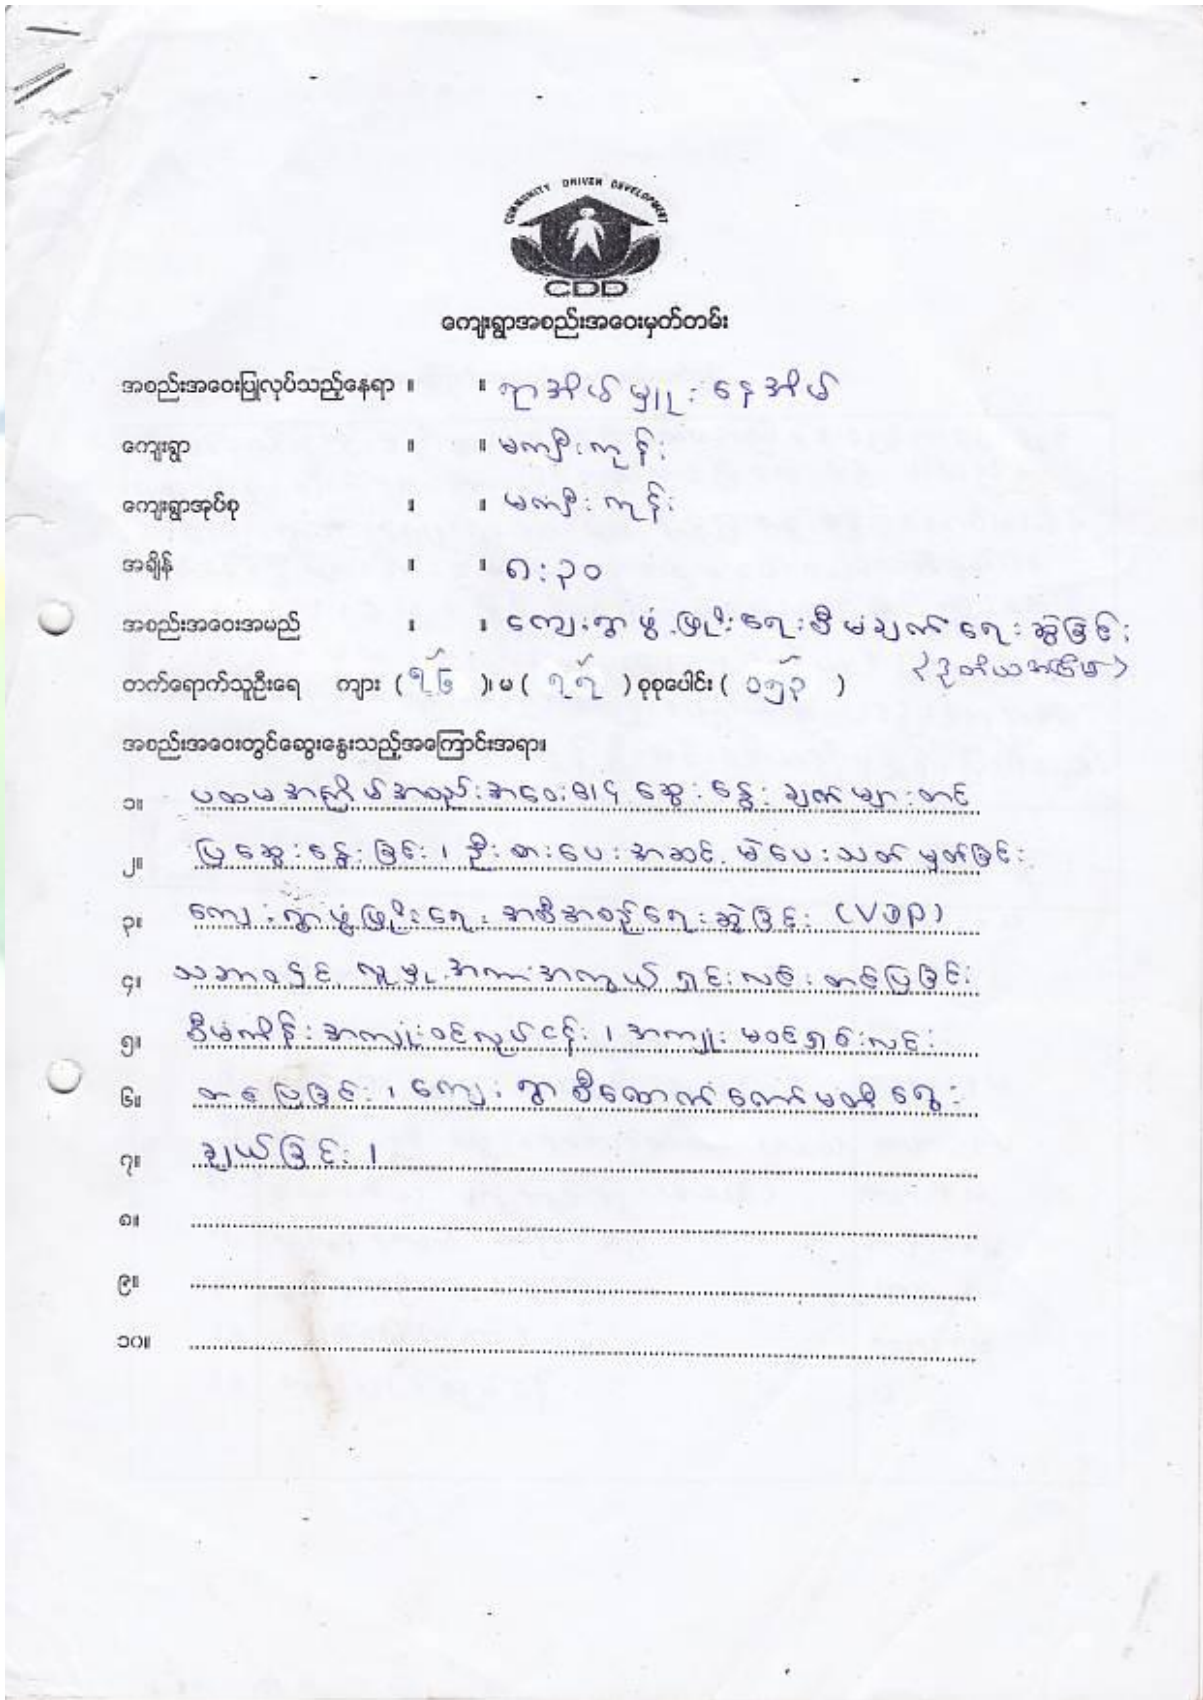 COMMUNITY DRIVEN DEVELOPMENT
CDD
ကျေးရွာအစည်းအဝေးမှတ်တမ်း
အစည်းအဝေးပြုလုပ်သည့်နေရာ ။ ။ ရာအိမ်မှူးနေအိမ်
ကျေးရွာ ။ ။ မကျီးကုန်း
ကျေးရွာအုပ်စု ။ ။ မကျီးကုန်း
အချိန် ။ ။ ၈:၃၀
အစည်းအဝေးအမည် ။ ။ ကျေးရွာဖွံ့ဖြိုးရေးစီမံချက်ရေးဆွဲခြင်း
(ဒုတိယအကြိမ်)
တက်ရောက်သူဦးရေ ကျား (၇၆)၊ မ (၇၇) စုစုပေါင်း (၁၅၃)
အစည်းအဝေးတွင်ဆွေးနွေးသည့်အကြောင်းအရာ။
၁။ ပထမအကြိမ်အစည်းအဝေး ဆွေးနွေးချက်များတင်
၂။ ပြဆွေးနွေးခြင်း၊ ဦးစားပေးအဆင့် မဲပေးသတ်မှတ်ခြင်း
၃။ ကျေးရွာဖွံ့ဖြိုးရေးအစီအစဉ်ရေးဆွဲခြင်း (VDP)
၄။ သဘာဝနှင့် လူမှုအကာအကွယ် ရှင်းလင်းတင်ပြခြင်း
၅။ စီမံကိန်းအကျုံးဝင်လုပ်ငန်း၊ အကျုံးမဝင်ရှင်းလင်း
၆။ တင်ပြခြင်း၊ ကျေးရွာစီထောက်ကော်မတီရွေး
၇။ ချယ်ခြင်း၊
၈။
၉။
၁၀။